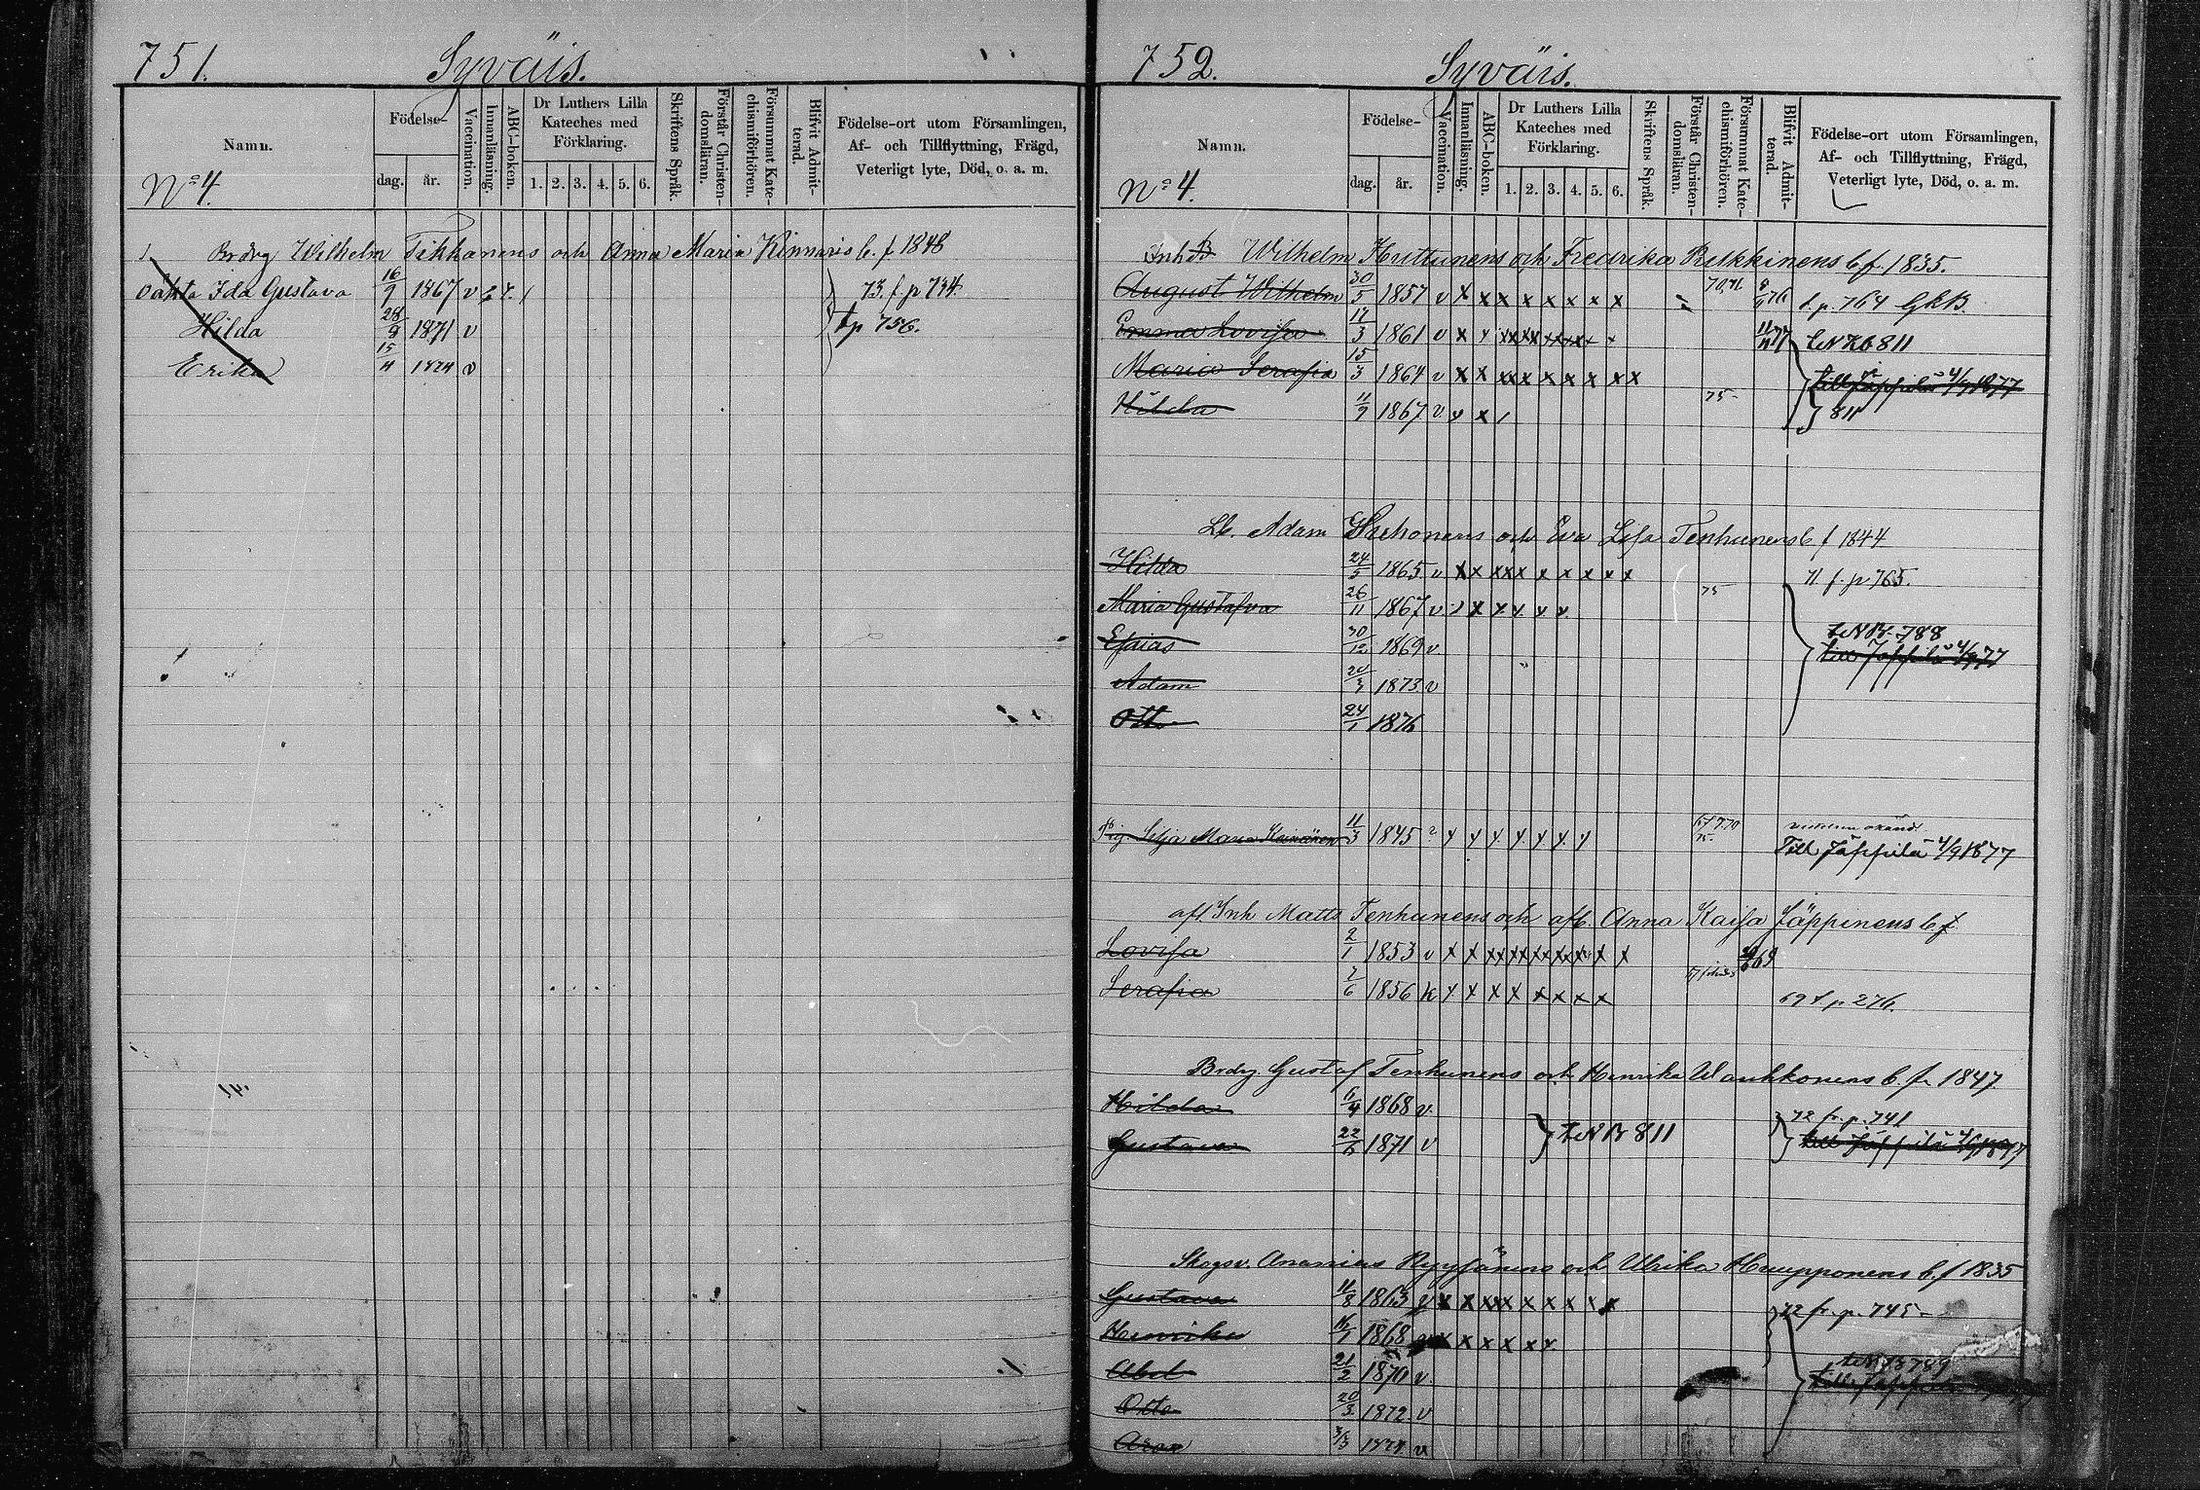 751. Syväis.
Namn.
Födelse-
dag. år.
Vaccination.
Innanläsning.
ABC-boken.
Dr Luthers Lilla
Kateches med
Förklaring.
1. 2. 3. 4. 5. 6.
Skriftens Språk.
Förstår Christen-
domsläran.
Försummat Kate-
chismiförhören.
Blifvit Admit-
terad.
Födelse-ort utom Församlingen,
Af- och Tillflyttning, Frägd,
Veterligt lyte, Död, o. a. m.
No 4.
Brdrg Wilhelm Tikkanens och Anna Maria Kinnaris b. f 1848
Ida Gustava 16/9 1867 v 73. f. p 734.
Hilda 28/9 1871 v t p 756.
Erika 15/4 1874 v
752. Syväis.
Namn.
Födelse-
dag. år.
Vaccination.
Innanläsning.
ABC-boken.
Dr Luthers Lilla
Kateches med
Förklaring.
1. 2. 3. 4. 5. 6.
Skriftens Språk.
Förstår Christen-
domsläran.
Försummat Kate-
chismiförhören.
Blifvit Admit-
terad.
Födelse-ort utom Församlingen,
Af- och Tillflyttning, Frägd,
Veterligt lyte, Död, o. a. m.
No 4.
Inh Wilhelm Huttunens och Fredrika Pulkkinens b f. 1835.
August Wilhelm 30/5 1857 v x x x x x x x x 70,71 t. p. 764
Emma Lovisa 17/3 1861 v x x 811
Maria Serafia 15/3 1864 v x x till Jäppilä 4/9 1877
Hilda 11/9 1867 v x x 75 811
Lb. Adam Hirhonens och Eva Lisa Tenhunens b f 1844
Hilda 24/5 1865 v 71 f. p 765.
Maria Gustafva 26/11 1867 v 75
Esaias 30/12 1869 v. 788
till Jäppilä 4/9 77
Adam 20/3 1873 v
Otto 24/1 1876
Pig Maria 11/3 1845 75
Till Jäppilä 4/9 1877
afl Inh Matts Tenhunens och afl. Anna Kaisa Jäppinens b f.
Lovisa 2/1 1853 v x x 69
Serafia 2/6 1856 k 69 f. p 276.
Brdrg. Gustaf Tenhunens och Henrika Wauhkonens b. f. 1847
Hilda 6/4 1868 v. 72 fr. p. 741
Gustava 22/6 1871 v 811 till Jäppilä 4/9 1877
Skogsv. Ananias Nyyssönens och Ulrika Haupponens b. f 1835
Gustava 11/8 1863 v 72 fr. p. 745
Henrika 16/1 1868
Abel 21/2 1870 v 789
Otto 20/3 1872 v
Aron 3/3 1874 v